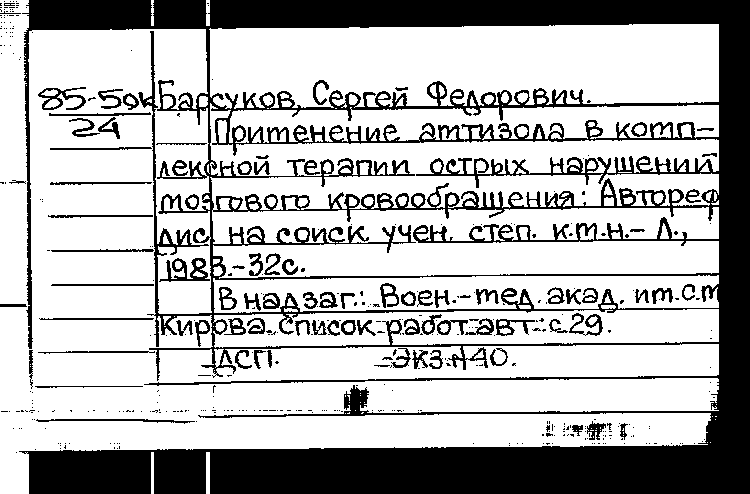 85-5дк Барсуков, Сергей Федорович.
24 Применение амтизола в комп-
лексной терапии острых нарушений
мозгового кровообращения: Автореф
дис. на соиск. учен. степ. к.м.н.- Л.,
1983.-32с.
В надзаг.: Воен.-мед. акад. им.С.М
Кирова. Список работ авт.: с.29.
ДСП. -Экз.N40.